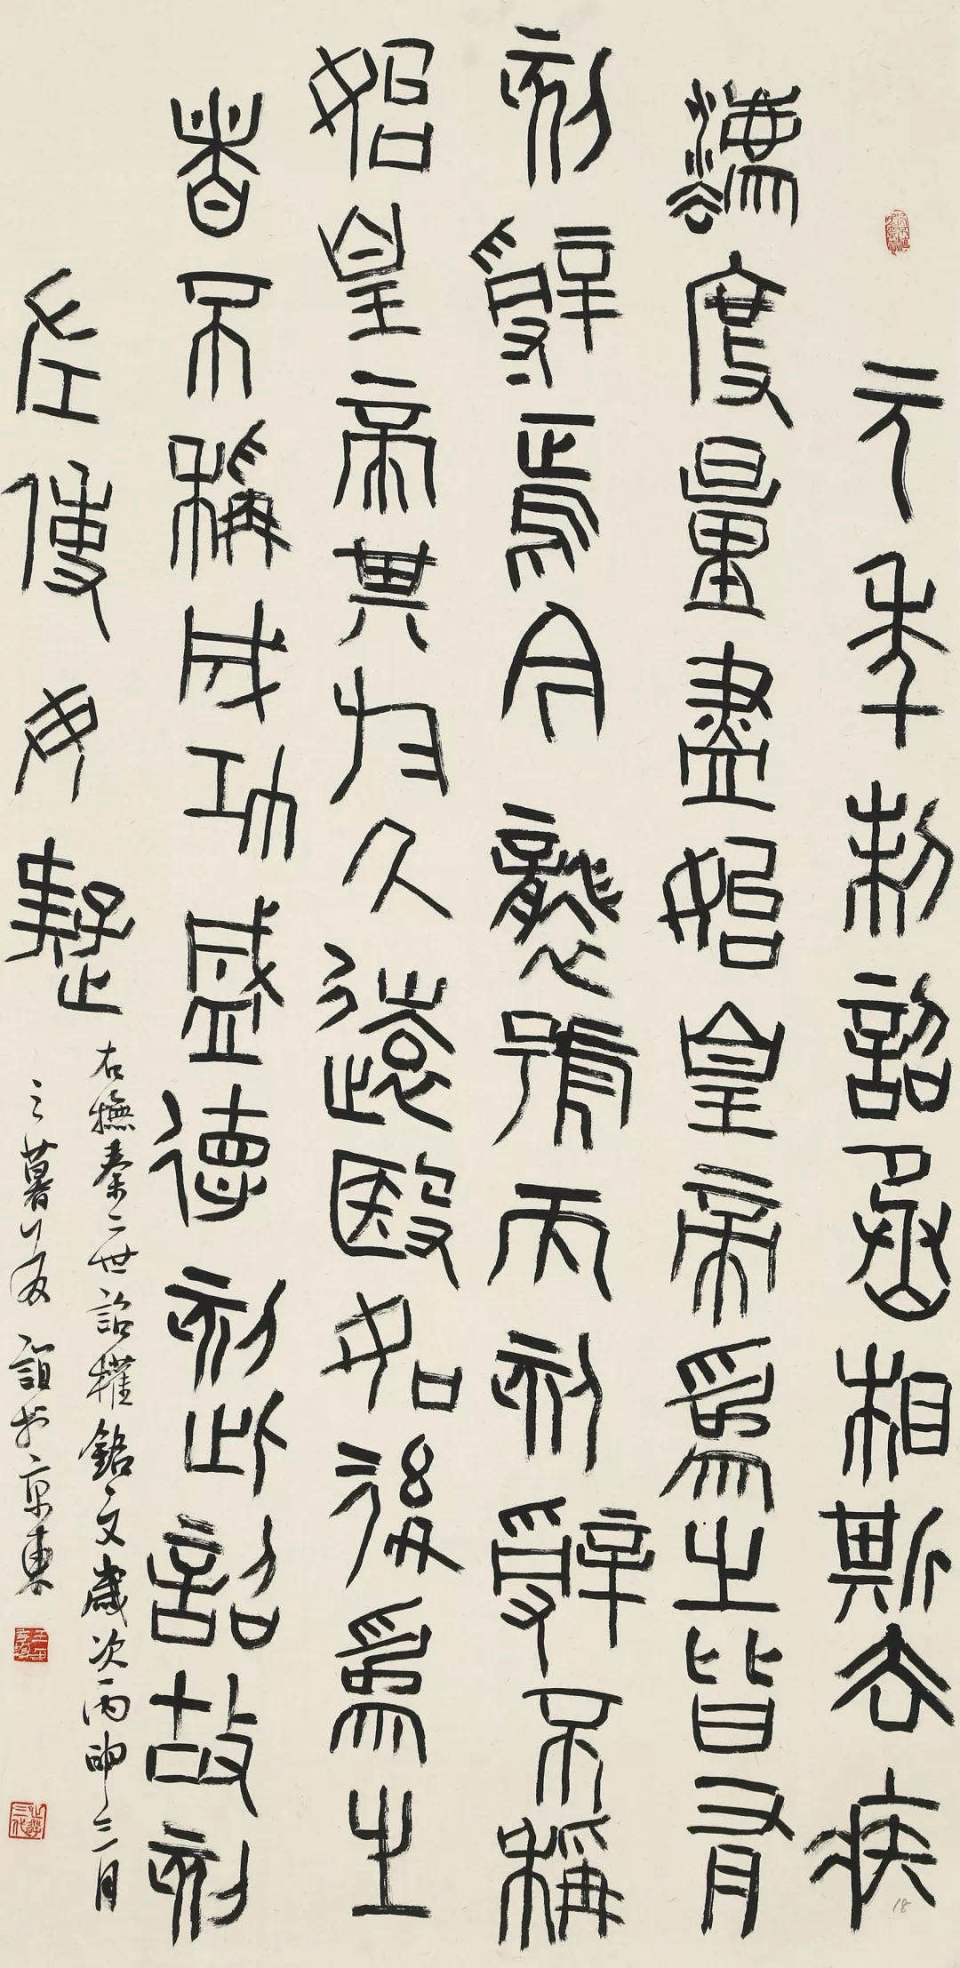 元年制詔丞相斯去疾
灋度量盡始皇帝爲之皆有
刻辭焉今襲號而刻辭不稱
始皇帝其於久遠殹如後爲之
者不稱成功盛德刻此詔故刻
左使毋疑
右撫秦二世詔權銘文歲次丙申三月
之暮王友誼於京東
18